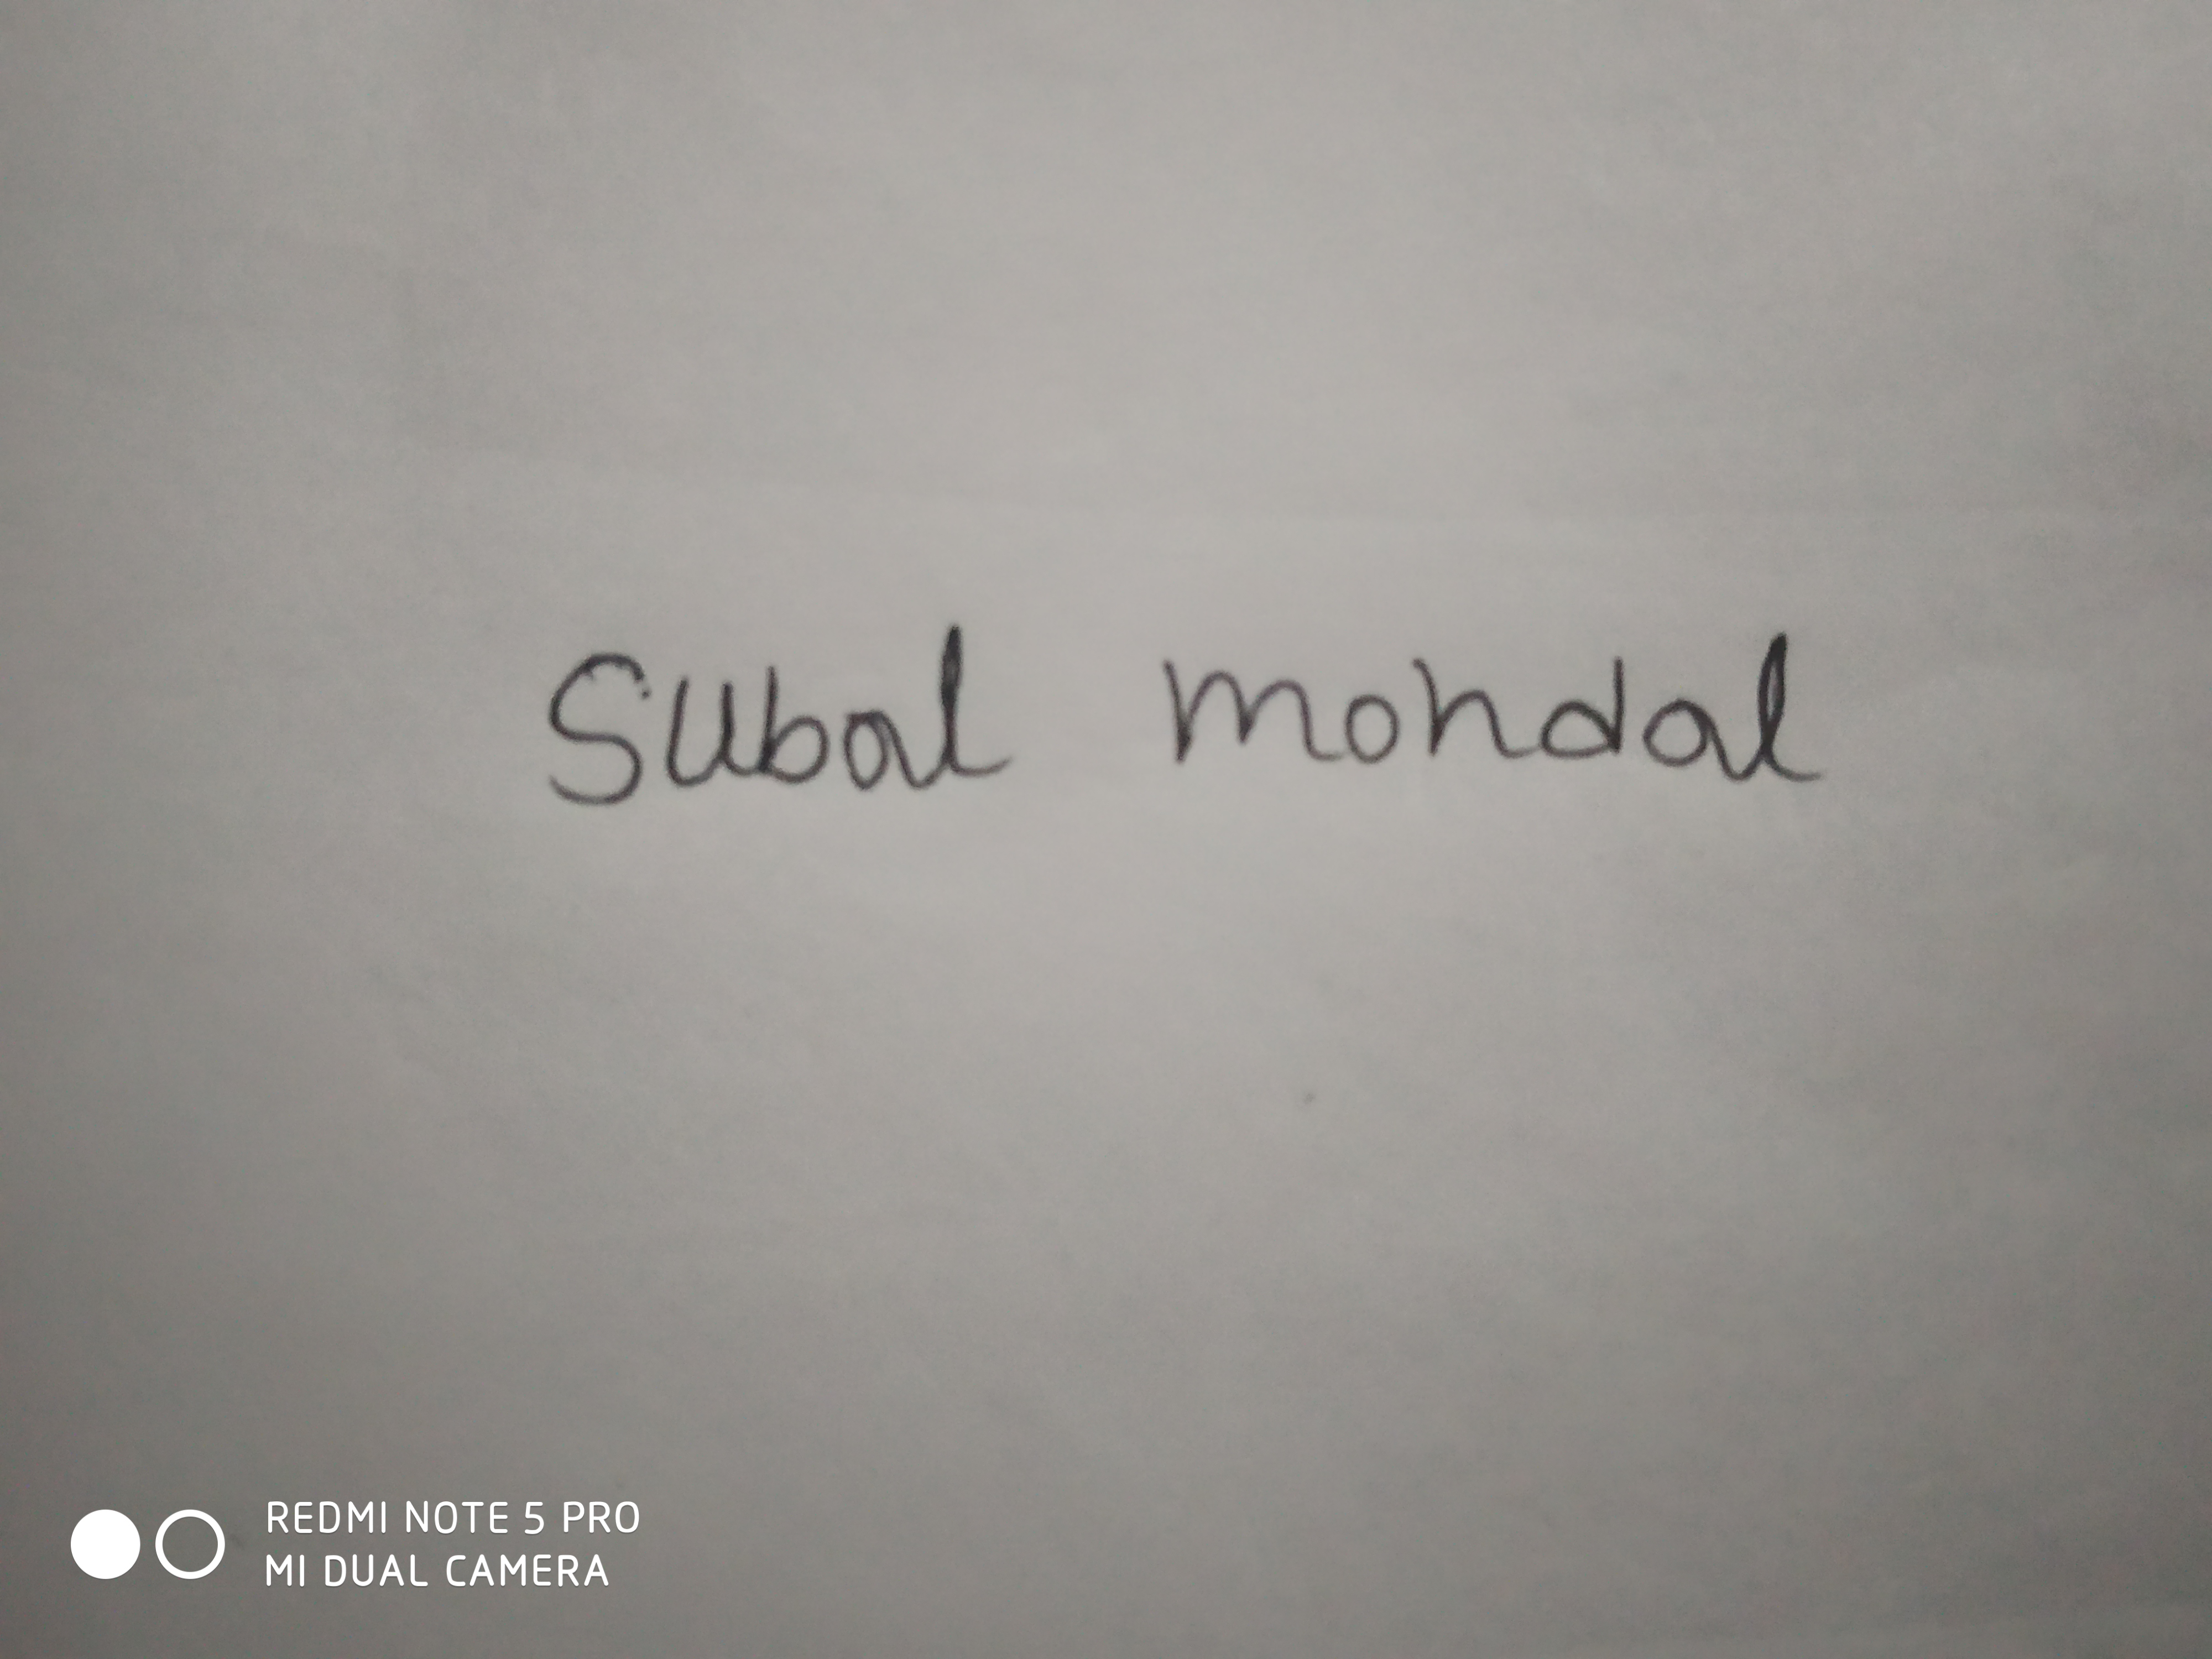 Subal mondal
REDMI NOTE 5 PRO
MI DUAL CAMERA